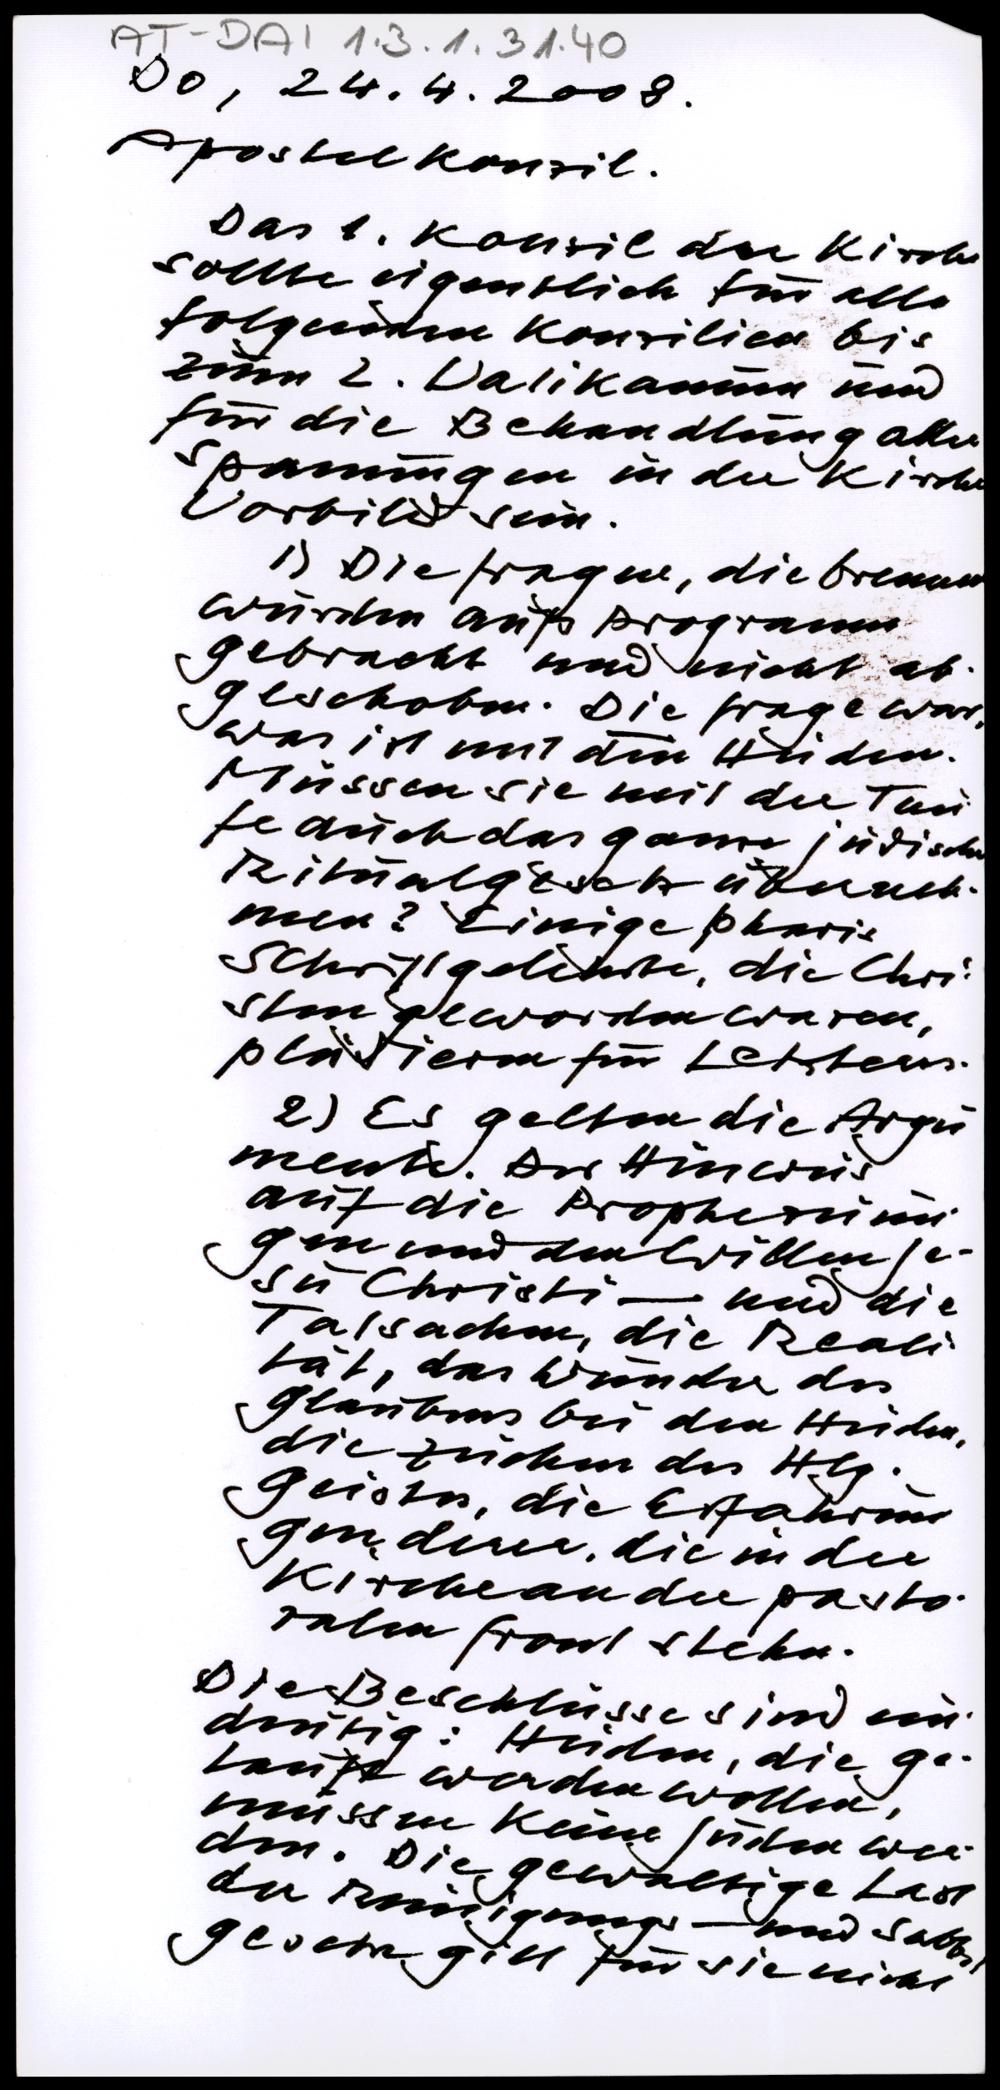 AT-DAI 1.3.1.31.40
Do, 24.4.2008.
Apostelkonzil.
Das 1. Konzil der Kirche
sollte eigentlich für alle
folgenden Konzilien bis
zum 2. Vatikanum und
für die Behandlung aller
Spannungen in der Kirche
Vorbild sein.
1) Die Fragen, die brennen
wurden aufs Programm
gebracht und nicht ab-
geschoben. Die Frage war,
was ist mit den Heiden.
Müssen sie mit der Tau
fe auch das ganze jüdische
Ritualgesetz überneh-
men? Einige pharis
Schriftgelehrte, die Chri-
sten geworden waren,
plädieren für Letzteres.
2) Es gelten die Argu
mente. Der Hinweis
auf die Prophezeiun-
gen und den Willen Je-
su Christi — und die
Tatsachen, die Reali
tät, das Wunder des
Glaubens bei den Heiden,
die Zeichen des Hlg.
Geistes, die Erfahrun
gen derer, die in der
Kirche an der pasto-
ralen Front stehen.
Die Beschlüsse sind ein-
deutig: Heiden, die ge-
tauft werden wollen,
müssen keine Juden wer-
den. Die gewaltige Last
der Reinigungs- und Sabbat
gesetze gilt für sie nicht